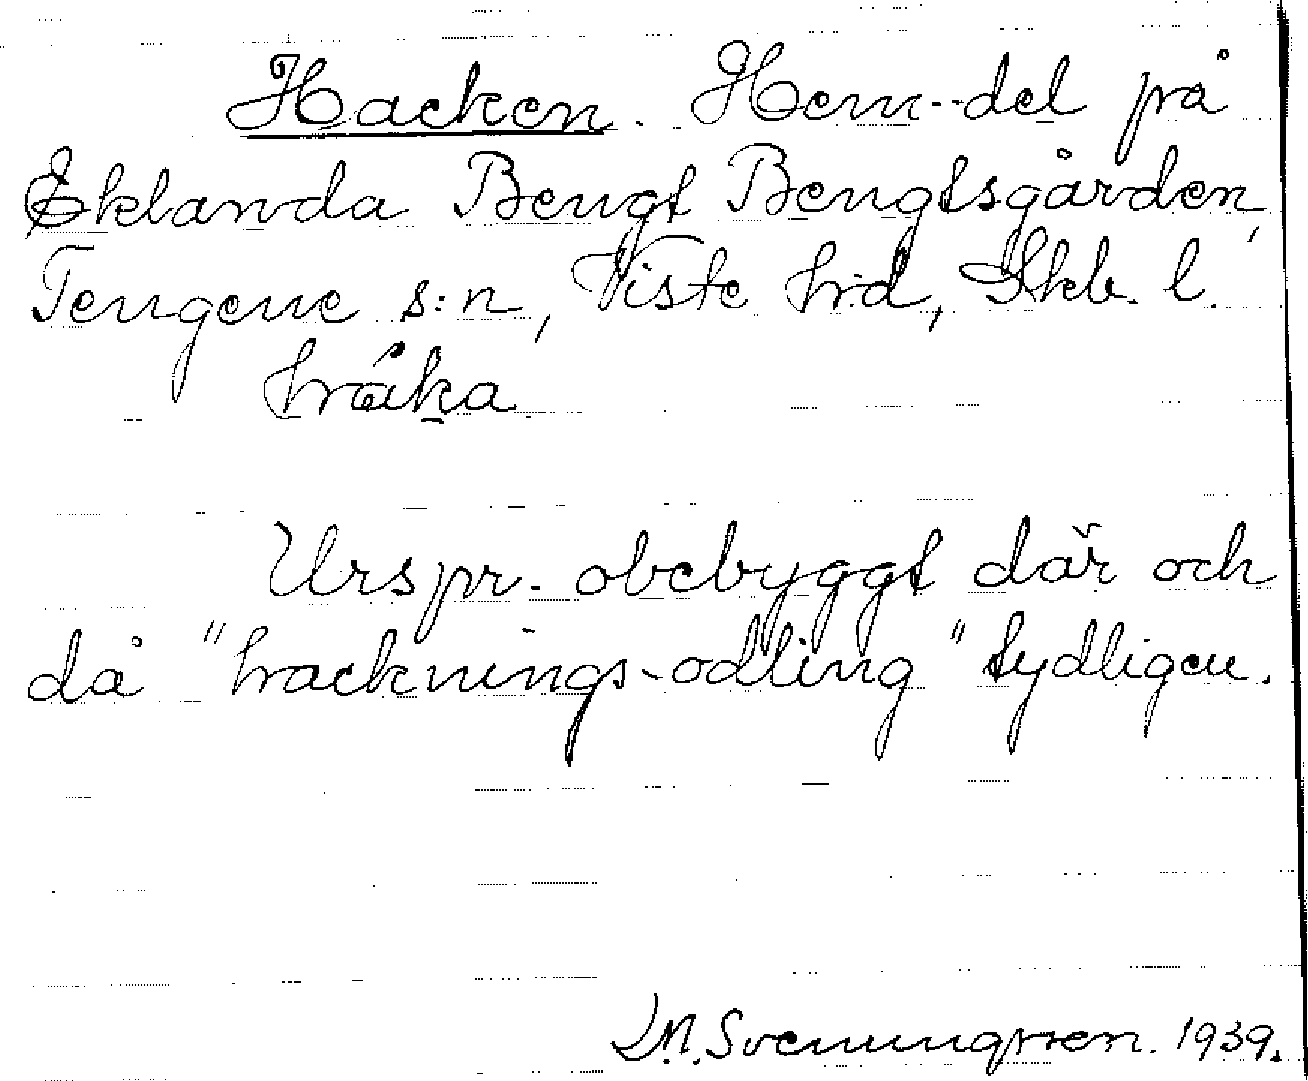 Hacken. Hem-del på
Eklanda Bengt Bengtsgården,
Tengene s:n, Viste h:d, Skb. l.
håka
Urspr. obebyggt där och
då "hacknings-odling" tydligen.
D.M. Svenungsson. 1939.